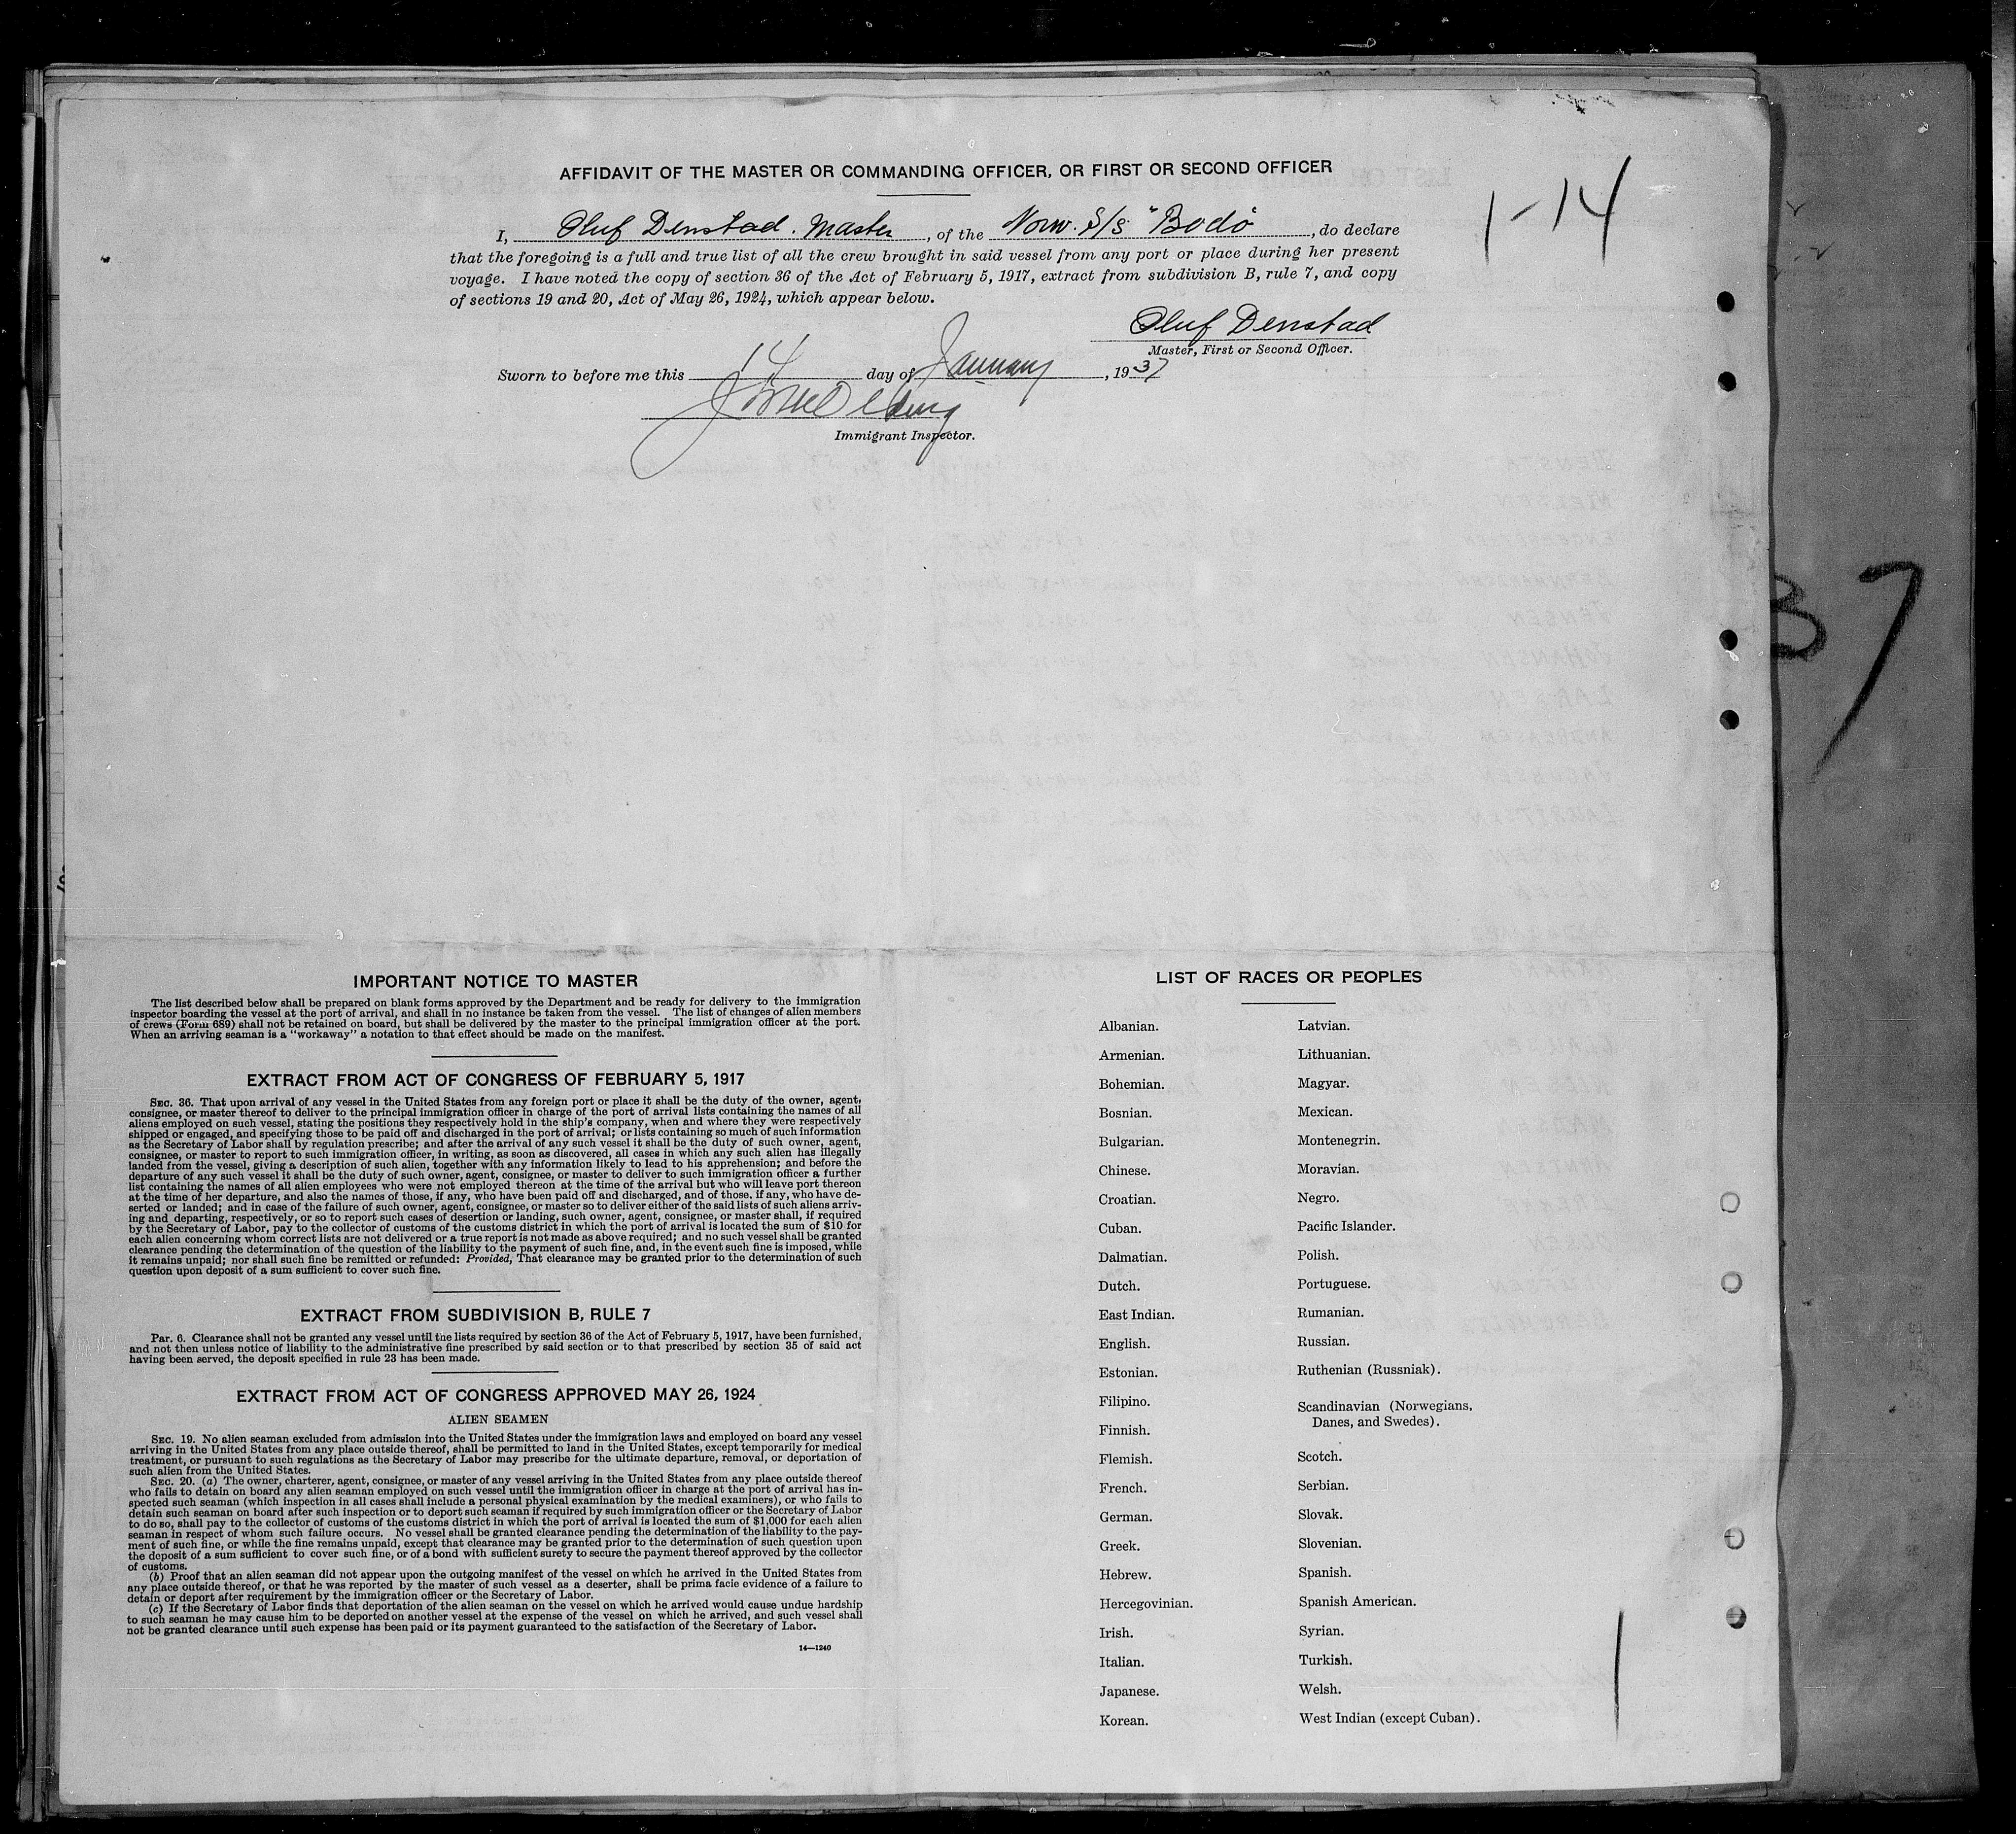 AFFIDAVIT OF THE MASTER OR COMMANDING OFFICER, OR FIRST OR SECOND OFFICER
1-14
I, Oluf Denstad. Master, of the Norw. S/S "Bodö", do declare
that the foregoing is a full and true list of all the crew brought in said vessel from any port or place during her present
voyage. I have noted the copy of section 36 of the Act of February 5, 1917, extract from subdivision B, rule 7, and copy
of sections 19 and 20, Act of May 26, 1924, which appear below.
Oluf Denstad
Master, First or Second Officer.
Sworn to before me this 14 day of January, 1937
Immigrant Inspector.
37
IMPORTANT NOTICE TO MASTER
The list described below shall be prepared on blank forms approved by the Department and be ready for delivery to the immigration
inspector boarding the vessel at the port of arrival, and shall in no instance be taken from the vessel. The list of changes of alien members
of crews (Form 689) shall not be retained on board, but shall be delivered by the master to the principal immigration officer at the port.
When an arriving seaman is a "workaway" a notation to that effect should be made on the manifest.
EXTRACT FROM ACT OF CONGRESS OF FEBRUARY 5, 1917
SEC. 36. That upon arrival of any vessel in the United States from any foreign port or place it shall be the duty of the owner, agent,
consignee, or master thereof to deliver to the principal immigration officer in charge of the port of arrival lists containing the names of all
aliens employed on such vessel, stating the positions they respectively hold in the ship's company, when and where they were respectively
shipped or engaged, and specifying those to be paid off and discharged in the port of arrival; or lists containing so much of such information
as the Secretary of Labor shall by regulation prescribe; and after the arrival of any such vessel it shall be the duty of such owner, agent,
consignee, or master to report to such immigration officer, in writing, as soon as discovered, all cases in which any such alien has illegally
landed from the vessel, giving a description of such alien, together with any information likely to lead to his apprehension; and before the
departure of any such vessel it shall be the duty of such owner, agent, consignee, or master to deliver to such immigration officer a further
list containing the names of all alien employees who were not employed thereon at the time of the arrival but who will leave port thereon
at the time of her departure, and also the names of those, if any, who have been paid off and discharged, and of those, if any, who have de-
serted or landed; and in case of the failure of such owner, agent, consignee, or master so to deliver either of the said lists of such aliens arriv-
ing and departing, respectively, or so to report such cases of desertion or landing, such owner, agent, consignee, or master shall, if required
by the Secretary of Labor, pay to the collector of customs of the customs district in which the port of arrival is located the sum of $10 for
each alien concerning whom correct lists are not delivered or a true report is not made as above required; and no such vessel shall be granted
clearance pending the determination of the question of the liability to the payment of such fine, and, in the event such fine is imposed, while
it remains unpaid; nor shall such fine be remitted or refunded: Provided, That clearance may be granted prior to the determination of such
question upon deposit of a sum sufficient to cover such fine.
EXTRACT FROM SUBDIVISION B, RULE 7
Par. 6. Clearance shall not be granted any vessel until the lists required by section 36 of the Act of February 5, 1917, have been furnished,
and not then unless notice of liability to the administrative fine prescribed by said section or to that prescribed by section 35 of said act
having been served, the deposit specified in rule 23 has been made.
EXTRACT FROM ACT OF CONGRESS APPROVED MAY 26, 1924
ALIEN SEAMEN
SEC. 19. No alien seaman excluded from admission into the United States under the immigration laws and employed on board any vessel
arriving in the United States from any place outside thereof, shall be permitted to land in the United States, except temporarily for medical
treatment, or pursuant to such regulations as the Secretary of Labor may prescribe for the ultimate departure, removal, or deportation of
such alien from the United States.
SEC. 20. (a) The owner, charterer, agent, consignee, or master of any vessel arriving in the United States from any place outside thereof
who fails to detain on board any alien seaman employed on such vessel until the immigration officer in charge at the port of arrival has in-
spected such seaman (which inspection in all cases shall include a personal physical examination by the medical examiners), or who fails to
detain such seaman on board after such inspection or to deport such seaman if required by such immigration officer or the Secretary of Labor
to do so, shall pay to the collector of customs of the customs district in which the port of arrival is located the sum of $1,000 for each alien
seaman in respect of whom such failure occurs. No vessel shall be granted clearance pending the determination of the liability to the pay-
ment of such fine, or while the fine remains unpaid, except that clearance may be granted prior to the determination of such question upon
the deposit of a sum sufficient to cover such fine, or of a bond with sufficient surety to secure the payment thereof approved by the collector
of customs.
(b) Proof that an alien seaman did not appear upon the outgoing manifest of the vessel on which he arrived in the United States from
any place outside thereof, or that he was reported by the master of such vessel as a deserter, shall be prima facie evidence of a failure to
detain or deport after requirement by the immigration officer or the Secretary of Labor.
(c) If the Secretary of Labor finds that deportation of the alien seaman on the vessel on which he arrived would cause undue hardship
to such seaman he may cause him to be deported on another vessel at the expense of the vessel on which he arrived, and such vessel shall
not be granted clearance until such expense has been paid or its payment guaranteed to the satisfaction of the Secretary of Labor.
14—1240
LIST OF RACES OR PEOPLES
Albanian.
Armenian.
Bohemian.
Bosnian.
Bulgarian.
Chinese.
Croatian.
Cuban.
Dalmatian.
Dutch.
East Indian.
English.
Estonian.
Filipino.
Finnish.
Flemish.
French.
German.
Greek.
Hebrew.
Hercegovinian.
Irish.
Italian.
Japanese.
Korean.
Latvian.
Lithuanian.
Magyar.
Mexican.
Montenegrin.
Moravian.
Negro.
Pacific Islander.
Polish.
Portuguese.
Rumanian.
Russian.
Ruthenian (Russniak).
Scandinavian (Norwegians,
Danes, and Swedes).
Scotch.
Serbian.
Slovak.
Slovenian.
Spanish.
Spanish American.
Syrian.
Turkish.
Welsh.
West Indian (except Cuban).